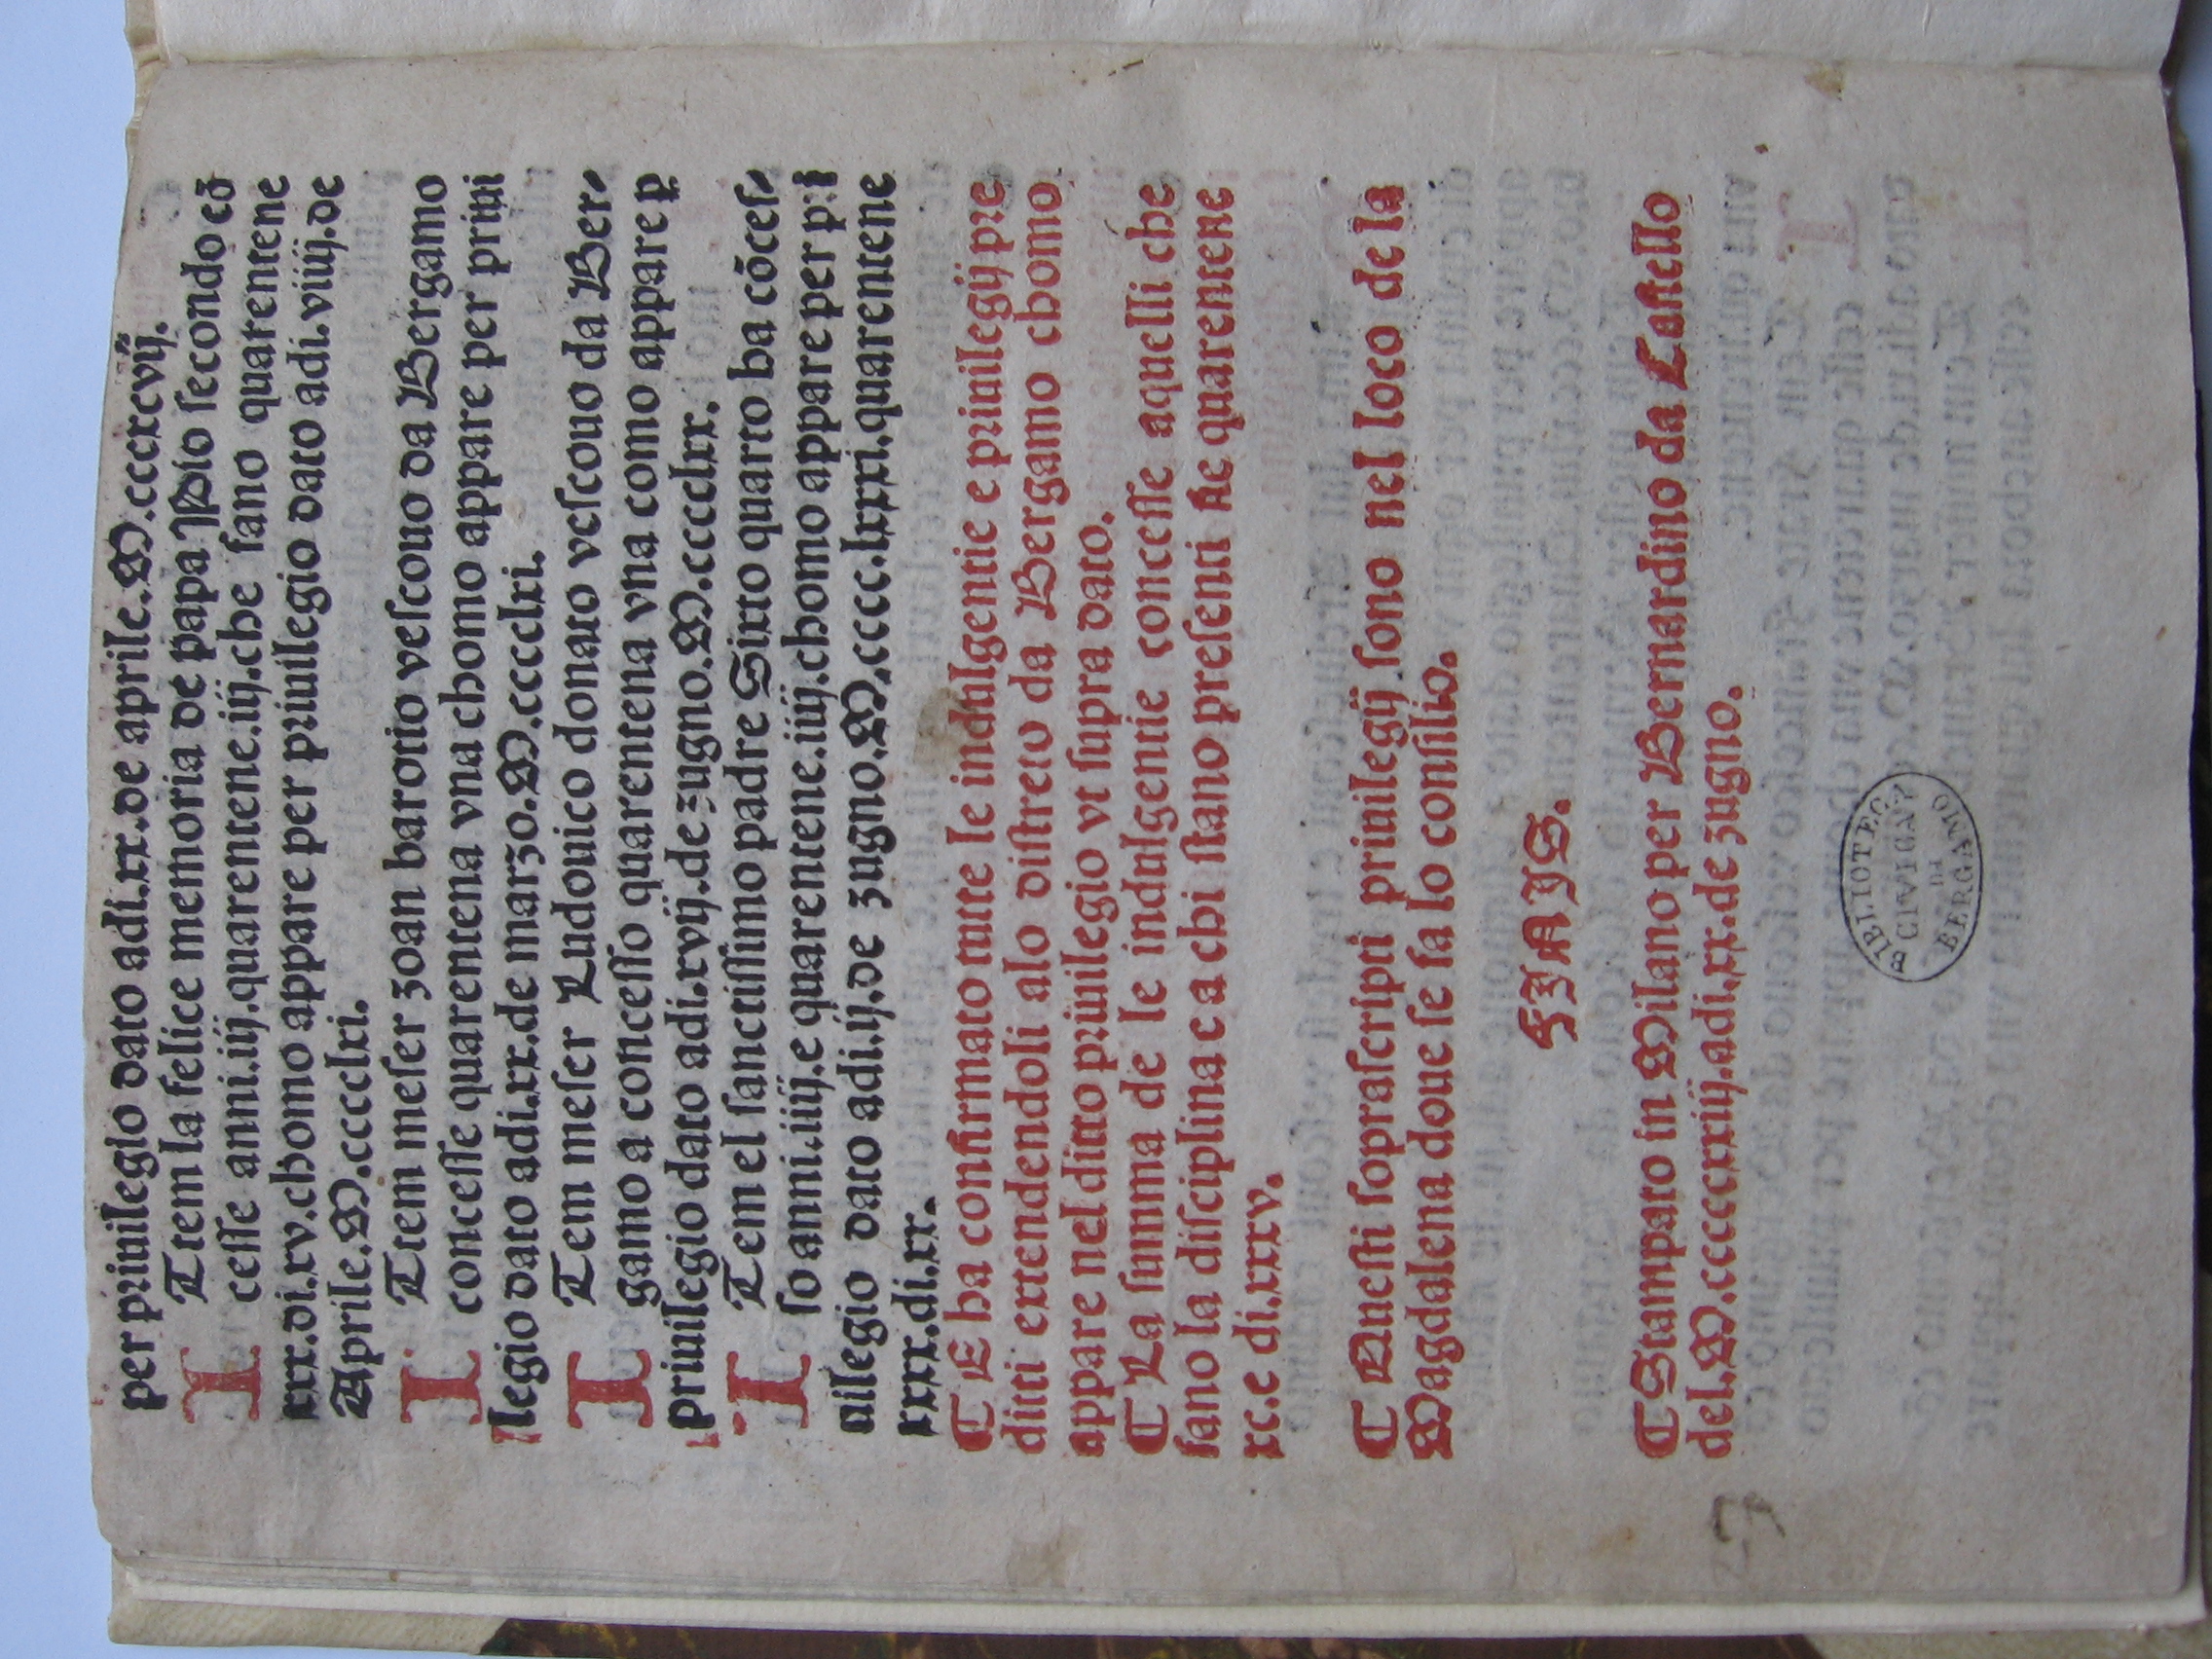 per priuilegio dato adi.xx.de aprile.M.cccxcvij.
ITem la felice memoria de papa Pio secondo cō
cesse anni.iij.quarentene.iij.che fano quarentene
xxx.di.xv.chomo appare per priuilegio dato adi.viiij.de
Aprile.M.cccclxi.
ITem meser zoan barotio vescouo da Bergamo
concesse quarentena vna chomo appare per priui
legio dato adi.xx.de marzo.M.cccclxi.
ITem meser Ludouico donato vescouo da Ber-
gamo a concesso quarentena vna como appare p
priuilegio dato adi.xvij.de zugno.M.cccclxx.
ITem el sanctissimo padre Sixto quarto ha cōces-
so anni.iiij.e quarentene.iiij.chomo appare per pri
uilegio dato adi.ij.de zugno.M.cccc.lxxxi.quarentene
xxxx.di.xx.
¶ E ha confirmato tutte le indulgentie e priuilegij pre
ditti extendendoli alo distreto da Bergamo chomo
appare nel ditto priuilegio vt supra dato.
¶ La summa de le indulgentie concesse aquelli che
fano la disciplina e a chi stano presenti ne quarentene
xc.e di.xxxv.
¶ Questi soprascripti priuilegij sono nel loco de la
Magdalena doue se fa lo consilio.
FINIS.
¶ Stampato in Milano per Bernardino da Castello
del.M.cccccxxiij.adi.xx.de zugno.
BIBLIOTECA
CIVICA
DI
BERGAMO